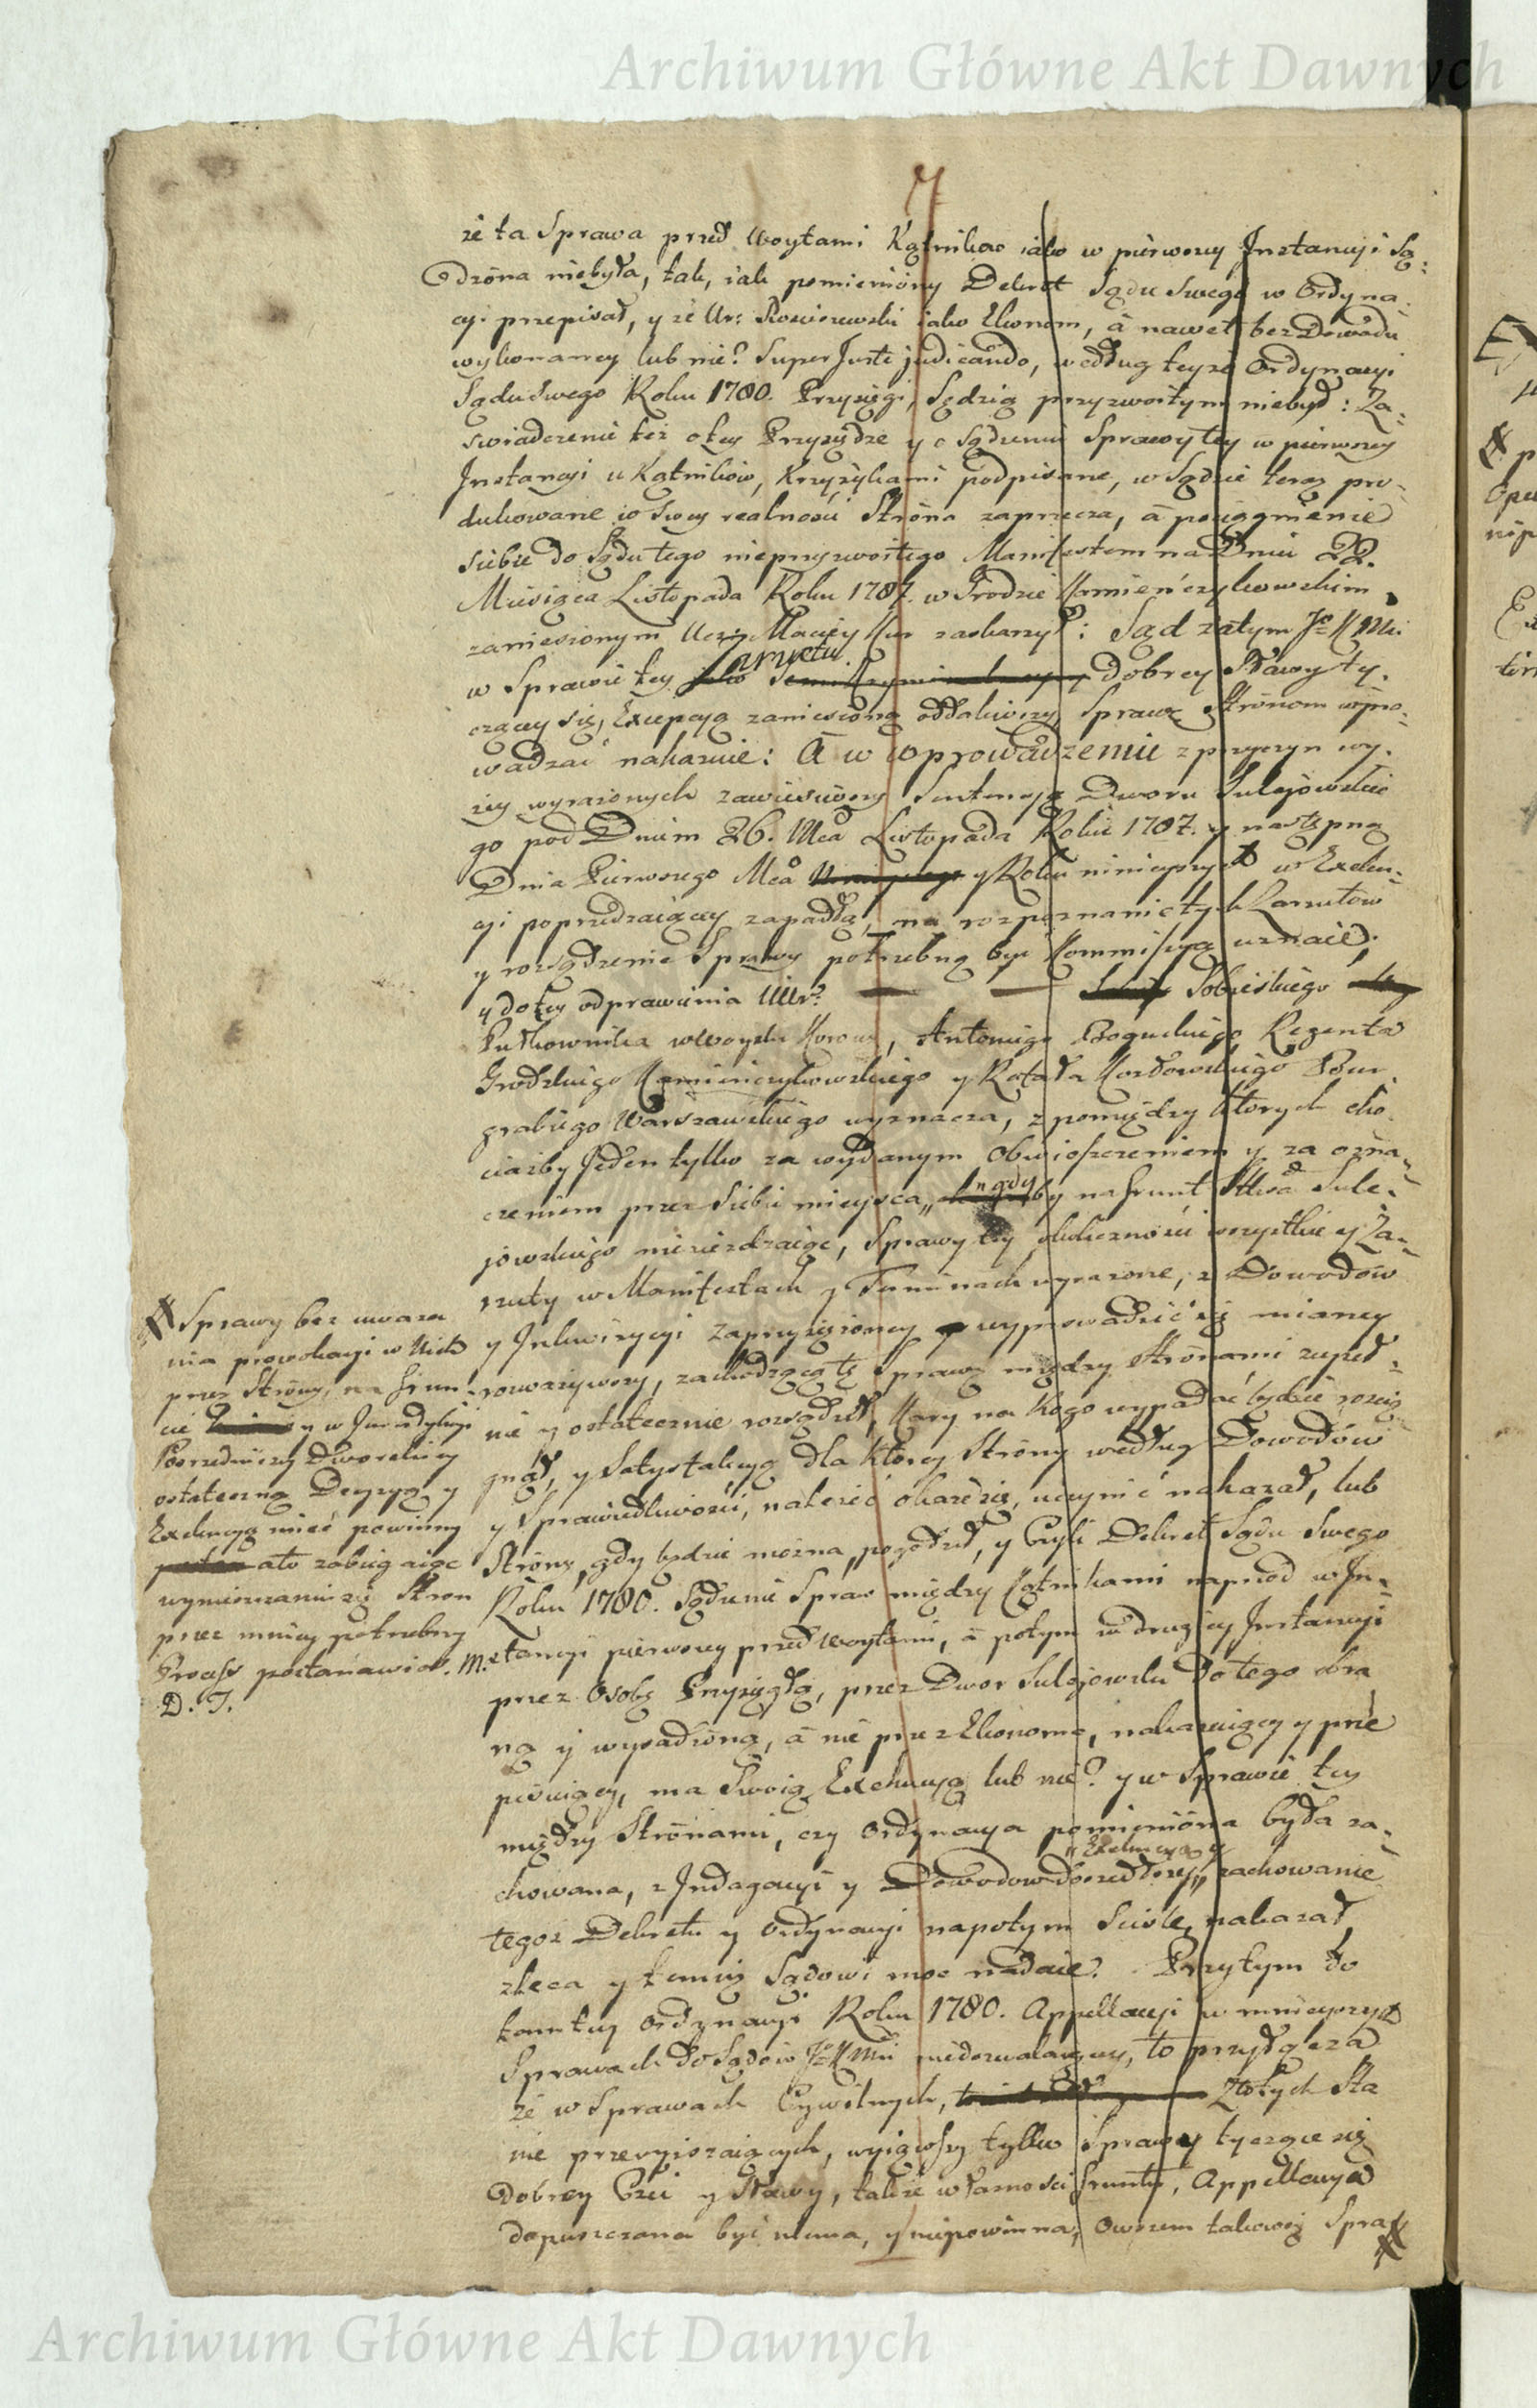 Archiwum Główne Akt Dawnych
że ta Sprawa przed Woytami Kątnikow iako w pierwszey Instancyi Są-
dzona niebyła, tak, iak pomieniony Dekret Sądu Swego w Ordyna-
cyi przepisał, y że Ur: iako Ekonom, à nawet bez Dowodu
wykonaney lub nie? Super Juste judicando, według teyże Ordynacyi
Sądu Swego Roku 1780. Przysięgi, Sędzią przyzwoitym niebył: Za-
swiadczenie też o tey Przysiędze y o Sądzeniu Sprawy tey w pierwszey
Instancyi u Kątników, Krzyżykami podpisane, w Sądzie teraz pro-
dukowane w Swey realności Strona zaprzecza, à pociągnienie
siebie do Sądu tego nieprzyzwoitego Manifestem na Dniu 22.
Miesiąca Listopada Roku 1787. w Grodzie Kamieńczykowskim
zaniesionym Ucz: Maciey Kur zaskarżył: Sąd zatym JoKMci
w Sprawie tey zarzutu dobrey Sławy ty-
czącey się, Excepcyą zaniesioną oddaliwszy, Sprawę Stronom wpro-
wadzać nakazuie: A w wprowadzeniu z przyczyn wy-
żey wyrażonych zawiesiwszy Sentencyą Dworu Sulejowskie
go pod Dniem 26. Mca Listopada Roku 1787. y następną
Dnia Pierwszego Mca y Roku ninieyszych w Exeku-
cyi poprzedzaiącey zapadłą, na rozpoznanie tych Zarzutów
y rozsądzenie Sprawy potrzebną być Kommissyą uznaie;
y do tey odprawienia UUr: Sobieskiego
Pułkownika w Woysku Koron, Antoniego Boguckiego Regenta
Grodzkiego Kamieńczykowskiego y Rafała Kozłowskiego Bur-
grabiego Warszawskiego wyznacza, z pomiędzy których cho-
ciażby Jeden tylko za wydanym Obwieszczeniem y za ozna-
czeniem przez Siebie mieysca, nigdy by na Grunt Sttwa Sule-
jowskiego niezieżdżaiąc, Sprawy tey okoliczności wszystkie y Za-
rzuty w Manifestach y Terminach wyrażone, z Dowodów
y Inkwizycyi zaprzysiężoney wyprowadzić się mianey
rozważywszy, zachodzącą tę Sprawę między Stronami zupeł-
nie y ostatecznie rozsądził, Kary na kogo wypadać będzie rozcią
gnął, y Satysfakcyą dla którey Strony według Dowodów
y Sprawiedliwości, należeć okaże się, uczynić nakazał, lub
Strony, gdy będzie można, pogodził, y Czyli Dekret Sądu Swego
Roku 1780. Sądzenie Spraw między Kątnikami naprzód w In-
stancyi pierwszey przed Woytami, à potym w drugiey Instancyi
przez Osobę Przysięgłą, przez Dwor Sulejowski do tego obra
ną y wysadzoną, à nie przez Ekonoma, nakazuiący y prze
pisuiący, ma Swoią Exekucyą lub nie? y w Sprawie tey
między Stronami, czy Ordynacya pomieniona była za-
chowana, z Indagacyi y Dowodow doszedłszy, Exekucyą y zachowanie
tegoż Dekretu y Ordynacyi napotym Scisłe, nakazał
zleca y temuż Sądowi moc nadaie. Przytym do
teyże Ordynacyi Roku 1780. Appellacyi w mnieyszych
Sprawach do Sądów JoKMci niedozwalaiącey, to przyłącza
że w Sprawach Cywilnych, Złotych Sta
nie przewyższaiących, wyiąwszy tylko Sprawy tyczące się
Dobrey Czci y Sławy, także własności Gruntu, Appellacya
dopuszczana być niema, y niepowinna, owszem takowey Spra
Sprawy bez uważa
nia prowokacyi w Nich
przez Strony, na Grun
cie y w Jurysdykcyi
Posredniczey Dworskiey
ostateczną Decyzyą y
Exekucyą mieć powinny
ato zabiegaiąc
wyniszczaniu się Stron
przez mniey potrzebny
Process postanawia. M.
D. J.
Archiwum Główne Akt Dawnych